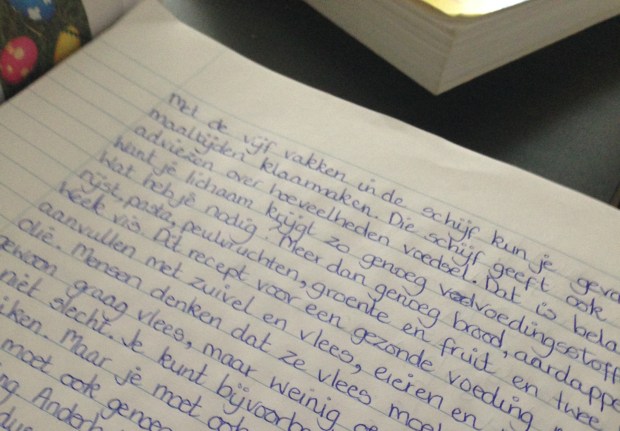 Met de vijf vakken in de schijf kun je geva
maaltijden klaarmaken. Die schijf geeft ook
adviezen over hoeveelheden voedsel. Dat is bela
want je lichaam krijgt zo genoeg voedingsstoff
Wat heb je nodig? Meer dan genoeg brood, aardappe
rijst, pasta, peulvruchten, groente en fruit en twee
week vis. Dit recept voor een gezonde voeding
aanvullen met zuivel en vlees, eieren en
olie. Mensen denken dat ze vlees moe
gewoon graag vlees, maar weinig
niet slecht. Je kunt bijvoorbe
iken. Maar je moet ook
moet ook genoe
ng. Anderh